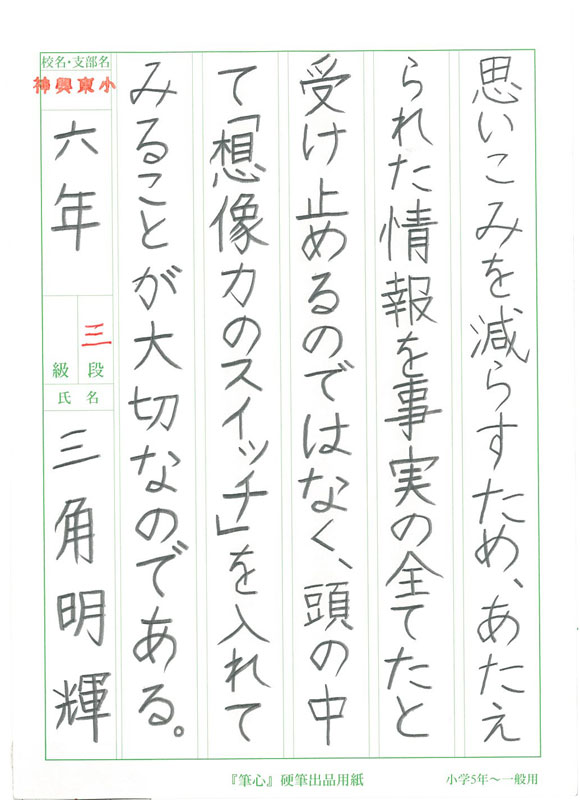 思いこみを減らすため、あたえ
られた情報を事実の全てたと
受け止めるのではなく、頭の中
て「想像力のスイッチ」を入れて
みることが大切なのである。
校名・支部名
神興東小
六年
三
段
級
氏名
三角明輝
『筆心』硬筆出品用紙
小学5年〜一般用